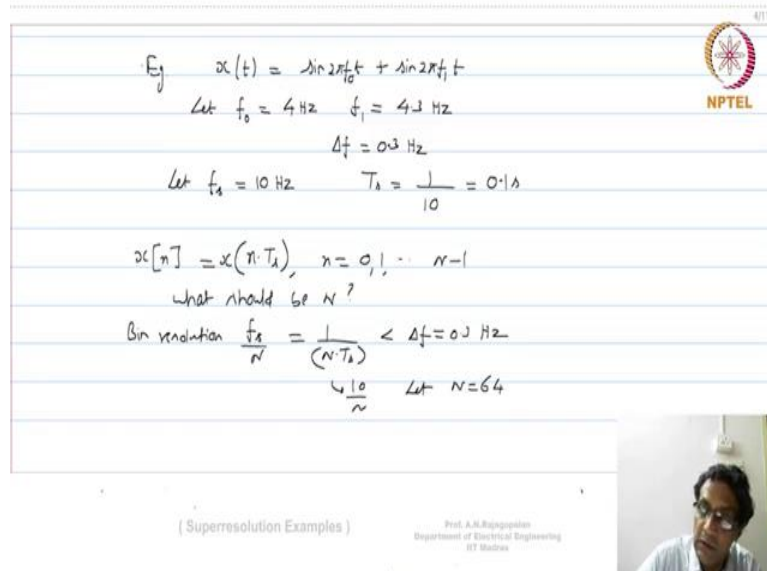 4/1
NPTEL
Eg x(t) = sin 2πf₀t + sin 2πf₁t
Let f₀ = 4 Hz f₁ = 4.3 Hz
Δf = 0.3 Hz
Let fₛ = 10 Hz Tₛ = 1/10 = 0.1 s
x[n] = x(n·Tₛ), n = 0, 1, ·· N-1
what should be N?
Bin resolution fₛ/N = 1/(N·Tₛ) < Δf = 0.3 Hz
↳ 10/N Let N = 64
( Superresolution Examples )
Prof. A.N.Rajagopalan
Department of Electrical Engineering
IIT Madras